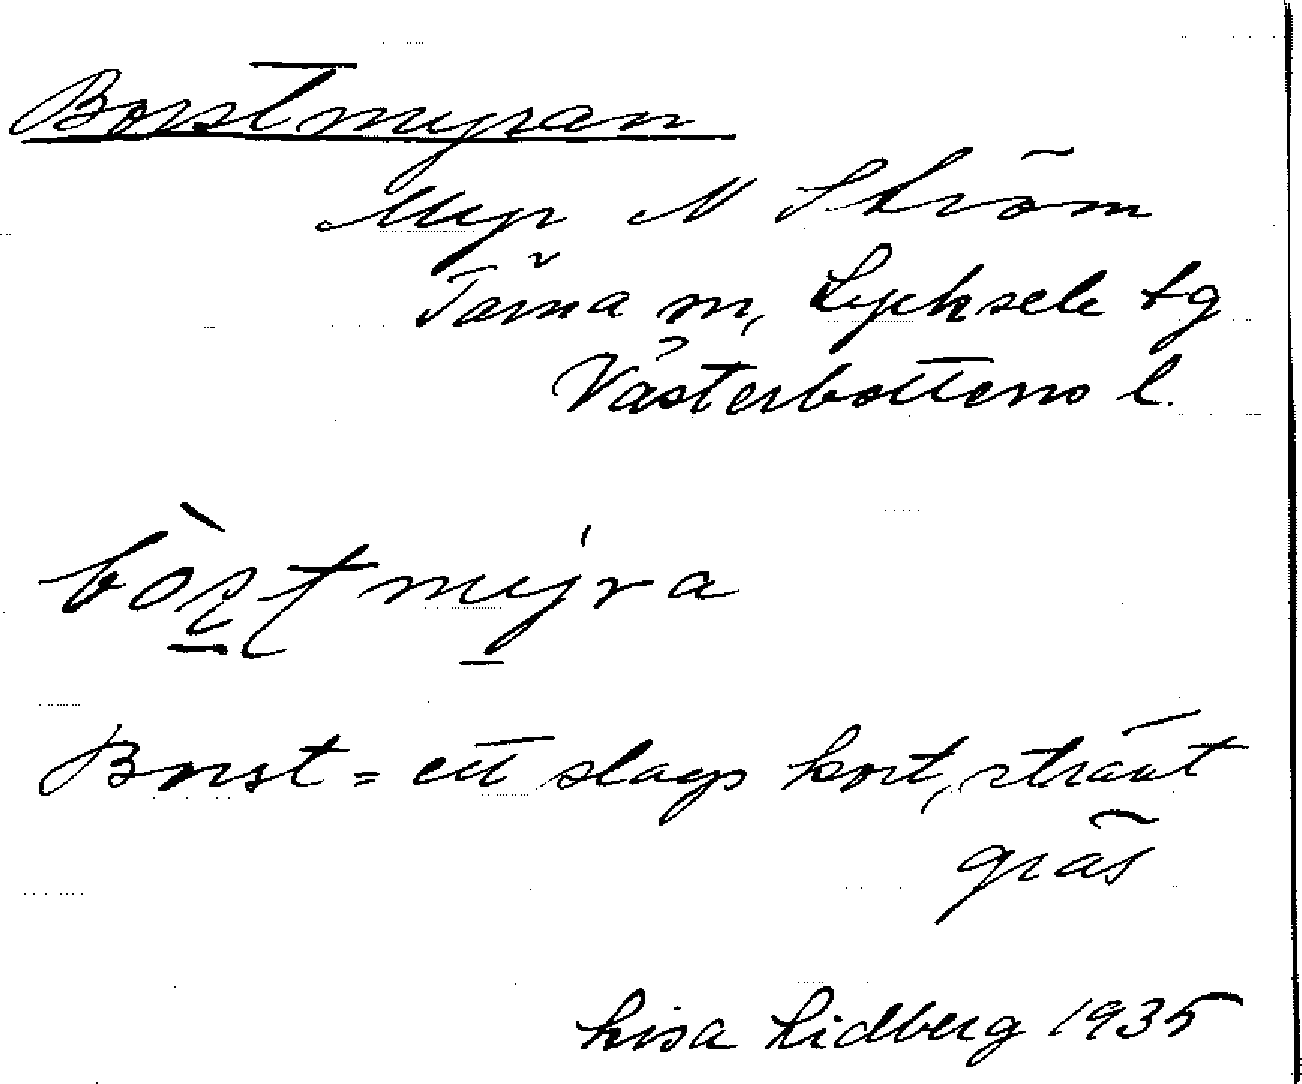 Borstmyran
Myr N Ström
Tärna sn, Lycksele tg
Västerbottens l.
bòʂt mýra
Borst = ett slags kort, strävt
gräs
Lisa Lidberg 1935